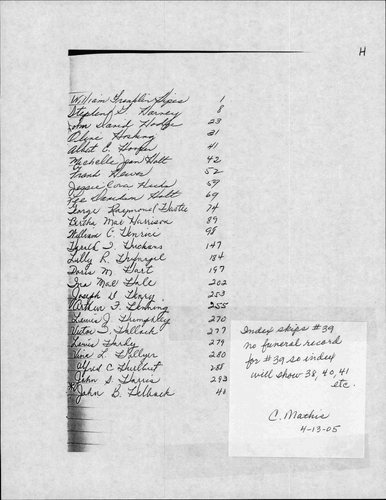 H
William Franklin Hipes 1
Stephen G. Harvey 8
John David Hodge 23
Aline Hosking 31
Albert E. Hooper 41
Michelle Jean Holt 42
Frank Hewes 52
Jessie Cora Hicks 59
Lee Davidson Holt 69
George Raymond 74
Bertha Mae Harrison 89
William C. Henrici 98
147
Lilly R. 184
Doris M. Hart 197
Ira Mae Hale 202
Joseph D. Henry 253
Arthur F. Henning 255
Lewis J. Humphrey 270
Victor D. Hallack 277
Lewis Hardy 279
Vina L. Hillyer 280
Alfred C. Hurlbut 288
John S. Harris 293
John B. Helback
Index skips #39
no funeral record
for #39 so index
will show 38, 40, 41
etc.
C. Mathis
4-13-05